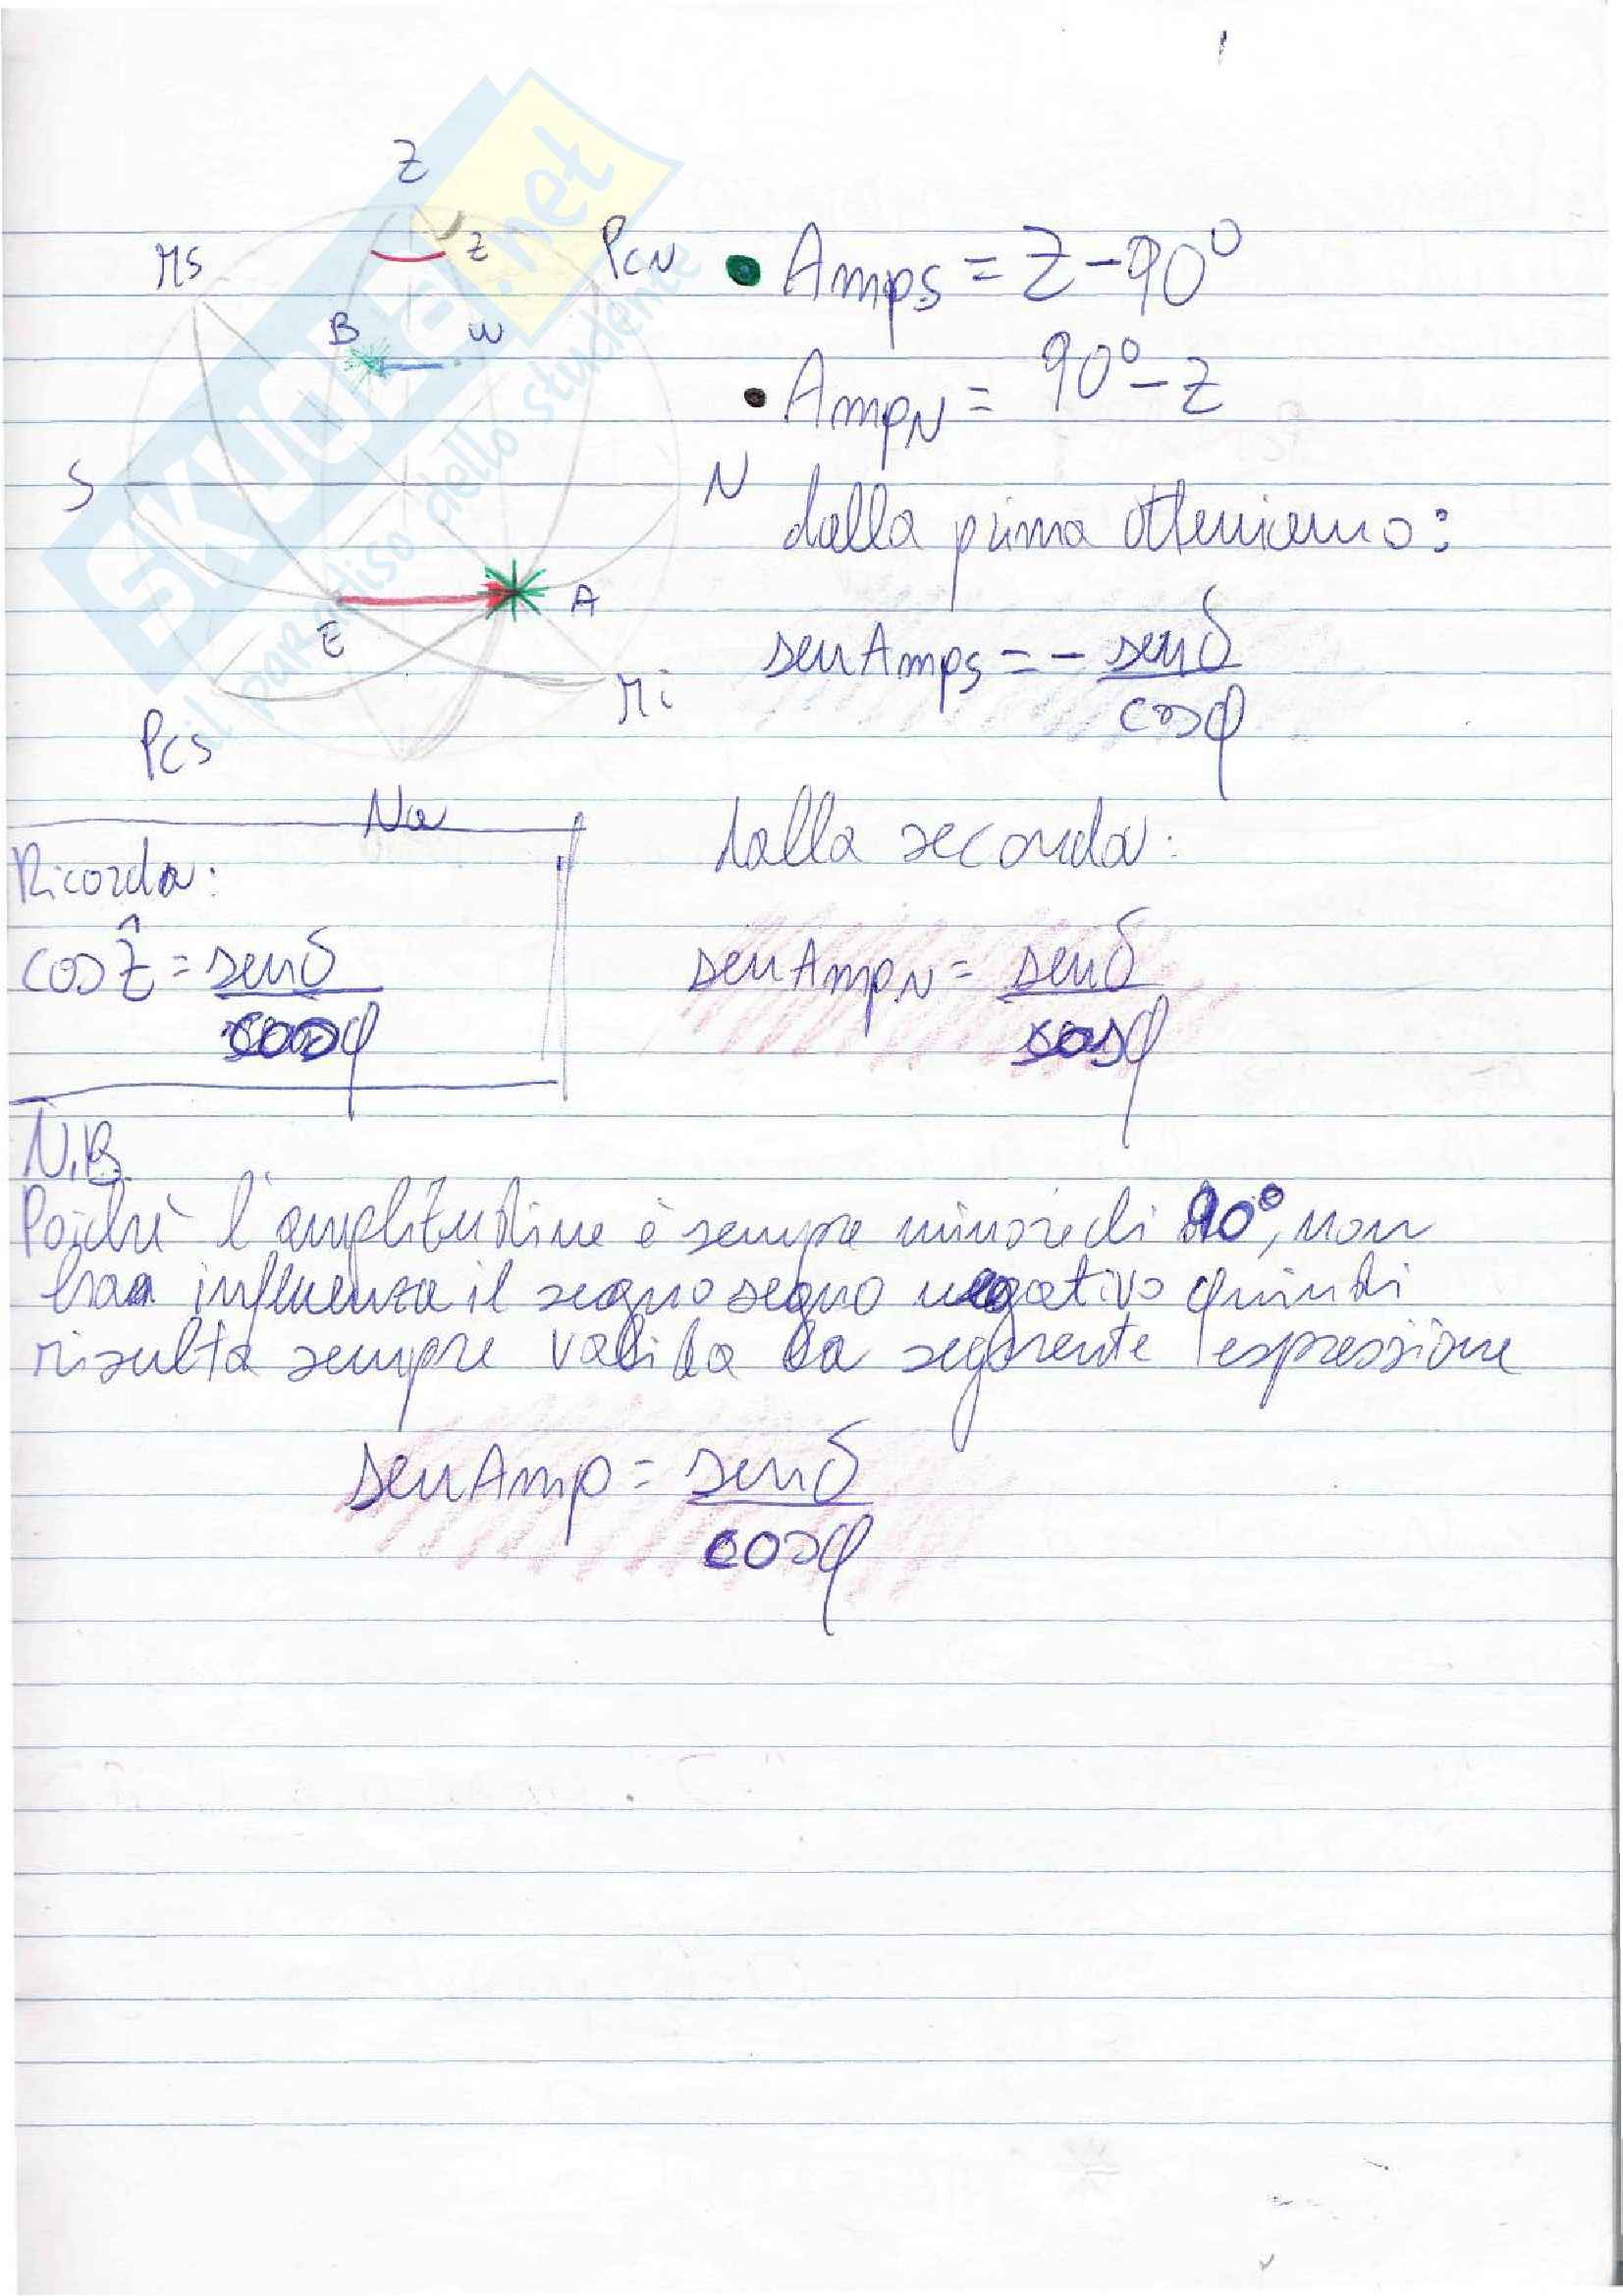 Z
Ms
z
PCN
B
W
S
N
E
A
Mi
PCS
Na
• Amps = Z-90°
• AmpN = 90°-Z
dalla prima otteniamo:
senAmps = - senδ
cosφ
dalla seconda:
senAmpN = senδ
cosφ
Ricorda:
cosẐ = senδ
cosφ
N.B.
Poichè l'amplitudine è sempre minore di 90°, non
ha influenza il segno segno negativo quindi
risulta sempre valida la seguente espressione
senAmp = senδ
cosφ
SKUOLA.net
il paradiso dello studente